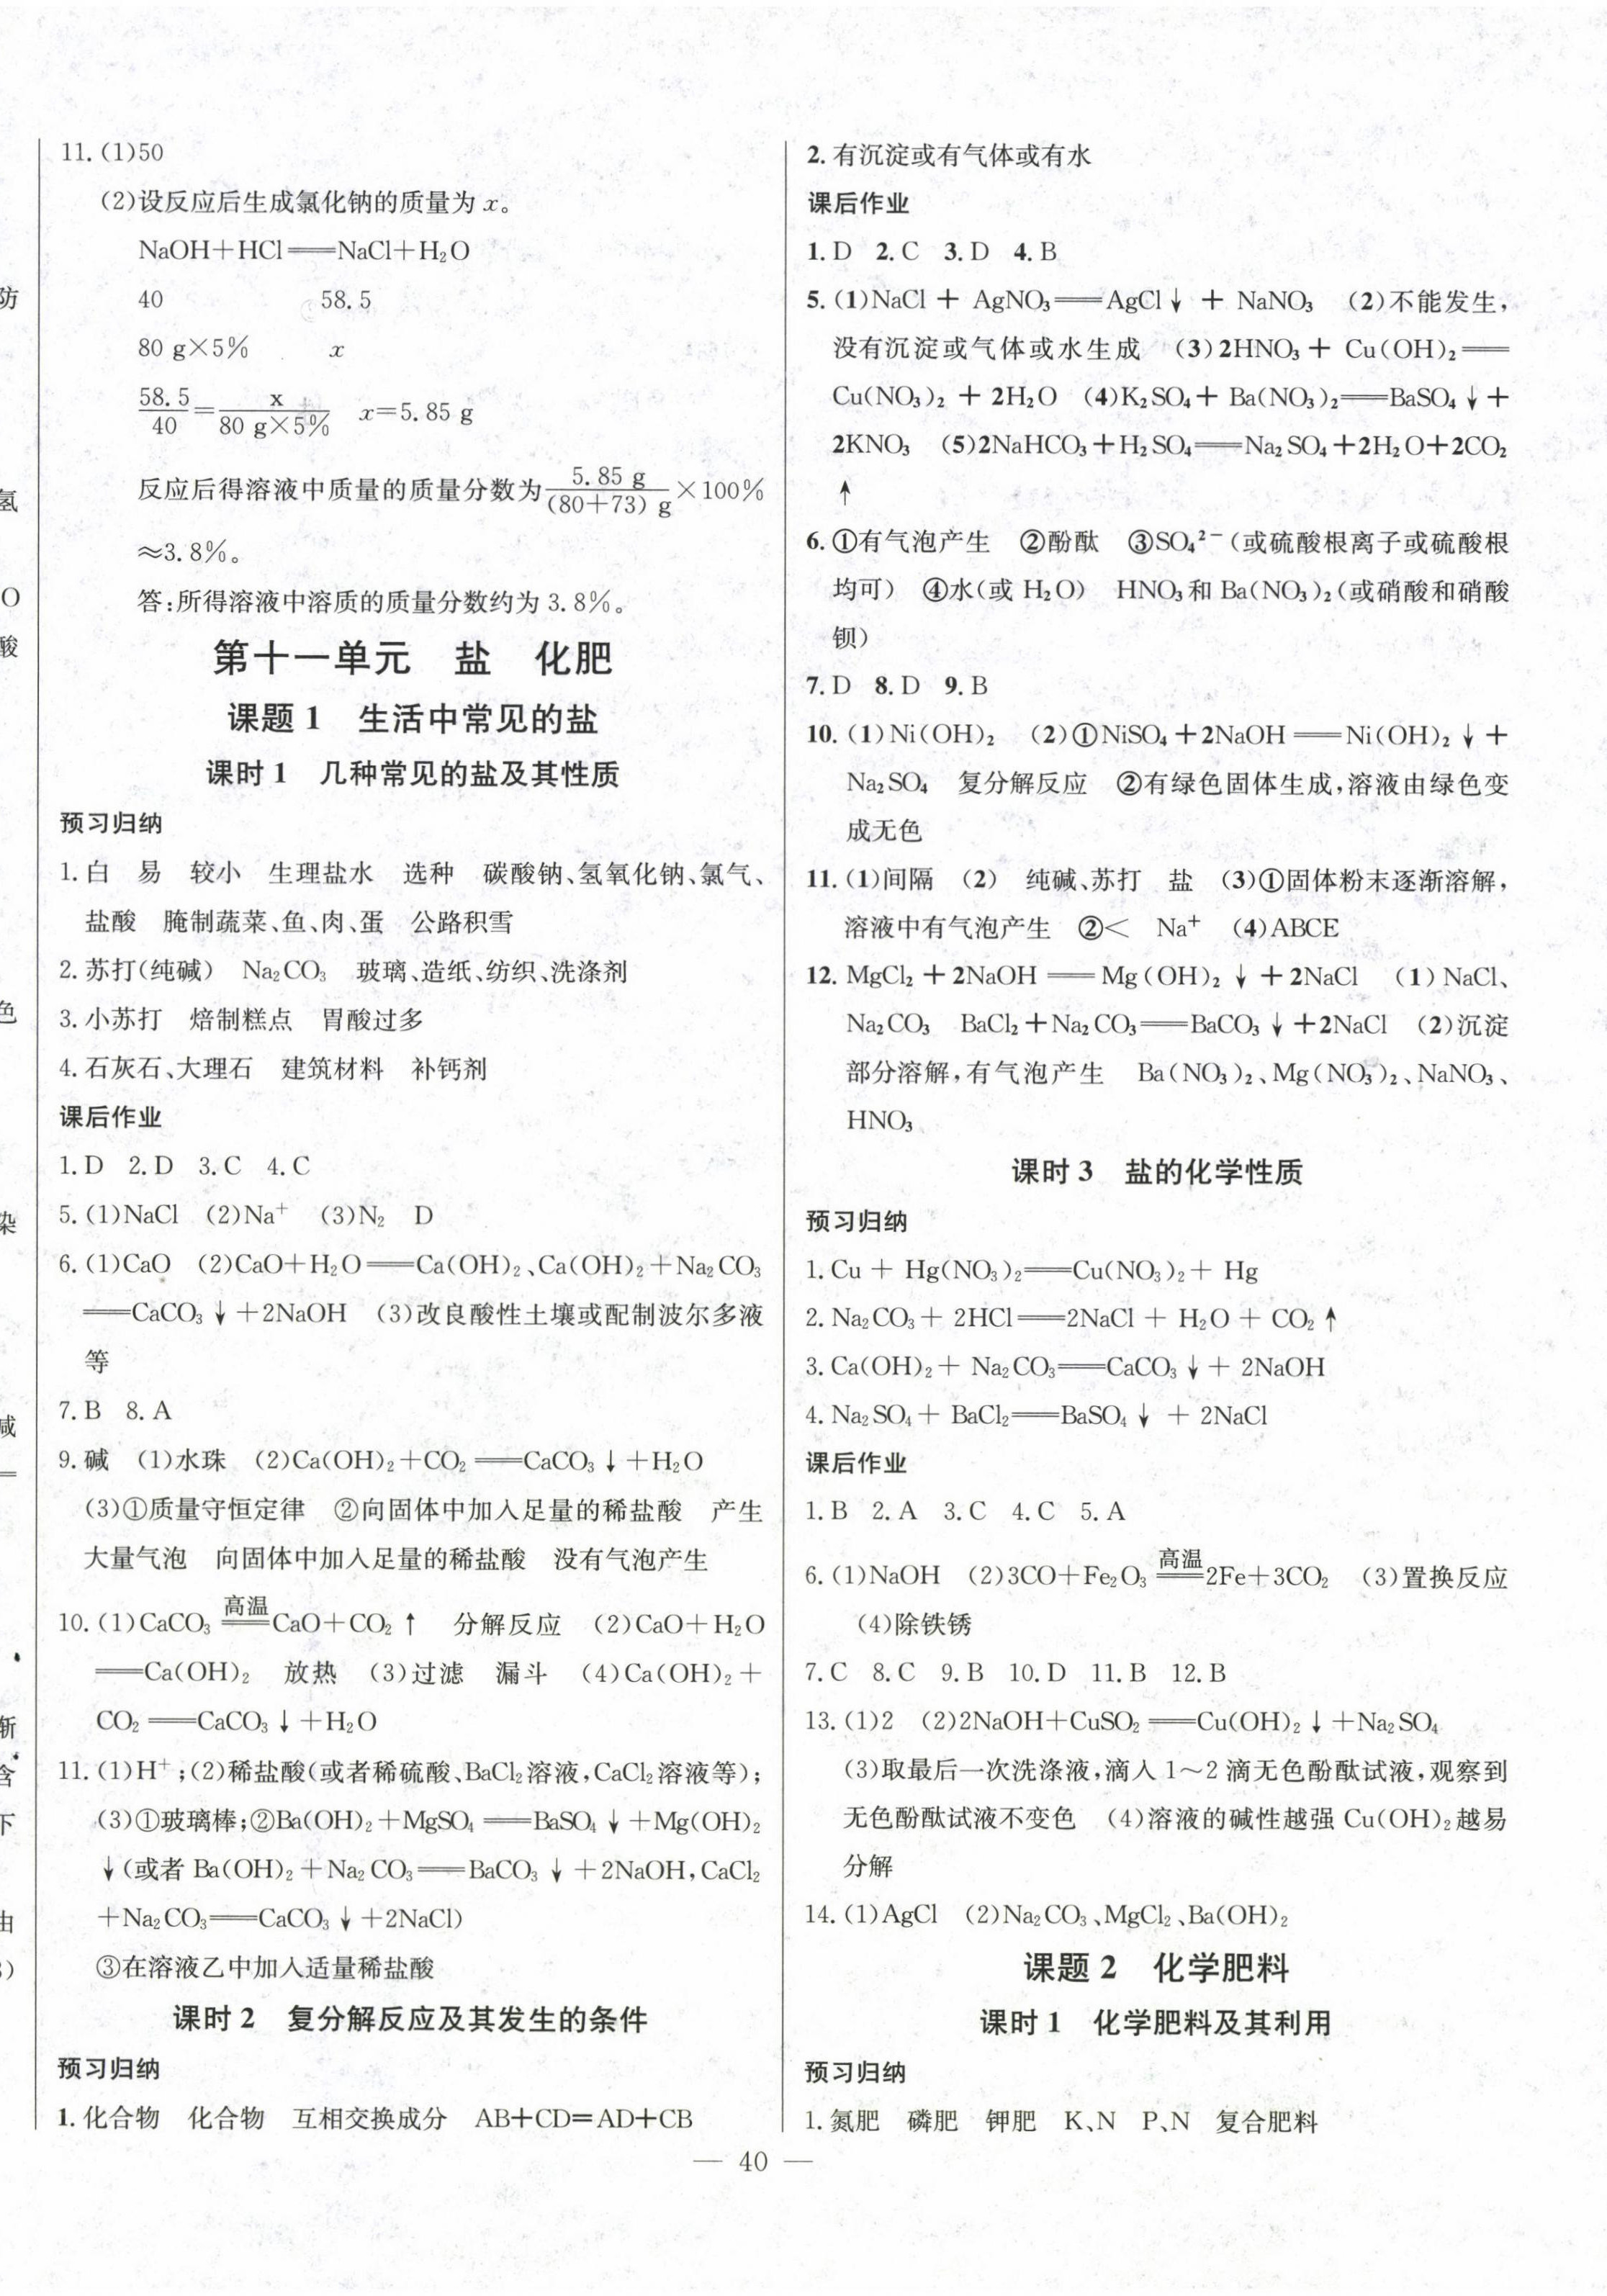 11. (1)50
(2)设反应后生成氯化钠的质量为 x。
NaOH+HCl══NaCl+H₂O
40 58.5
80 g×5% x
58.5/40=x/(80 g×5%) x=5.85 g
反应后得溶液中质量的质量分数为5.85 g/(80+73) g×100%
≈3.8%。
答:所得溶液中溶质的质量分数约为 3.8%。
第十一单元 盐 化肥
课题 1 生活中常见的盐
课时 1 几种常见的盐及其性质
预习归纳
1. 白 易 较小 生理盐水 选种 碳酸钠、氢氧化钠、氯气、
盐酸 腌制蔬菜、鱼、肉、蛋 公路积雪
2. 苏打(纯碱) Na₂CO₃ 玻璃、造纸、纺织、洗涤剂
3. 小苏打 焙制糕点 胃酸过多
4. 石灰石、大理石 建筑材料 补钙剂
课后作业
1. D 2. D 3. C 4. C
5. (1)NaCl (2)Na⁺ (3)N₂ D
6. (1)CaO (2)CaO+H₂O══Ca(OH)₂、Ca(OH)₂+Na₂CO₃
══CaCO₃↓+2NaOH (3)改良酸性土壤或配制波尔多液
等
7. B 8. A
9. 碱 (1)水珠 (2)Ca(OH)₂+CO₂══CaCO₃↓+H₂O
(3)①质量守恒定律 ②向固体中加入足量的稀盐酸 产生
大量气泡 向固体中加入足量的稀盐酸 没有气泡产生
10. (1)CaCO₃ 高温══CaO+CO₂↑ 分解反应 (2)CaO+H₂O
══Ca(OH)₂ 放热 (3)过滤 漏斗 (4)Ca(OH)₂+
CO₂══CaCO₃↓+H₂O
11. (1)H⁺;(2)稀盐酸(或者稀硫酸、BaCl₂溶液,CaCl₂溶液等);
(3)①玻璃棒;②Ba(OH)₂+MgSO₄══BaSO₄↓+Mg(OH)₂
↓(或者 Ba(OH)₂+Na₂CO₃══BaCO₃↓+2NaOH,CaCl₂
+Na₂CO₃══CaCO₃↓+2NaCl)
③在溶液乙中加入适量稀盐酸
课时 2 复分解反应及其发生的条件
预习归纳
1. 化合物 化合物 互相交换成分 AB+CD=AD+CB
2. 有沉淀或有气体或有水
课后作业
1. D 2. C 3. D 4. B
5. (1)NaCl + AgNO₃══AgCl↓ + NaNO₃ (2)不能发生,
没有沉淀或气体或水生成 (3)2HNO₃+ Cu(OH)₂══
Cu(NO₃)₂ + 2H₂O (4)K₂SO₄+ Ba(NO₃)₂══BaSO₄↓+
2KNO₃ (5)2NaHCO₃+H₂SO₄══Na₂SO₄+2H₂O+2CO₂
↑
6. ①有气泡产生 ②酚酞 ③SO₄²⁻(或硫酸根离子或硫酸根
均可) ④水(或 H₂O) HNO₃和 Ba(NO₃)₂(或硝酸和硝酸
钡)
7. D 8. D 9. B
10. (1)Ni(OH)₂ (2)①NiSO₄+2NaOH══Ni(OH)₂↓+
Na₂SO₄ 复分解反应 ②有绿色固体生成,溶液由绿色变
成无色
11. (1)间隔 (2) 纯碱、苏打 盐 (3)①固体粉末逐渐溶解,
溶液中有气泡产生 ②< Na⁺ (4)ABCE
12. MgCl₂+2NaOH══Mg(OH)₂↓+2NaCl (1)NaCl、
Na₂CO₃ BaCl₂+Na₂CO₃══BaCO₃↓+2NaCl (2)沉淀
部分溶解,有气泡产生 Ba(NO₃)₂、Mg(NO₃)₂、NaNO₃、
HNO₃
课时 3 盐的化学性质
预习归纳
1. Cu + Hg(NO₃)₂══Cu(NO₃)₂+ Hg
2. Na₂CO₃+ 2HCl══2NaCl + H₂O + CO₂↑
3. Ca(OH)₂+ Na₂CO₃══CaCO₃↓+ 2NaOH
4. Na₂SO₄+ BaCl₂══BaSO₄↓ + 2NaCl
课后作业
1. B 2. A 3. C 4. C 5. A
6. (1)NaOH (2)3CO+Fe₂O₃ 高温══2Fe+3CO₂ (3)置换反应
(4)除铁锈
7. C 8. C 9. B 10. D 11. B 12. B
13. (1)2 (2)2NaOH+CuSO₂══Cu(OH)₂↓+Na₂SO₄
(3)取最后一次洗涤液,滴入 1～2 滴无色酚酞试液,观察到
无色酚酞试液不变色 (4)溶液的碱性越强 Cu(OH)₂越易
分解
14. (1)AgCl (2)Na₂CO₃、MgCl₂、Ba(OH)₂
课题 2 化学肥料
课时 1 化学肥料及其利用
预习归纳
1. 氮肥 磷肥 钾肥 K、N P、N 复合肥料
— 40 —